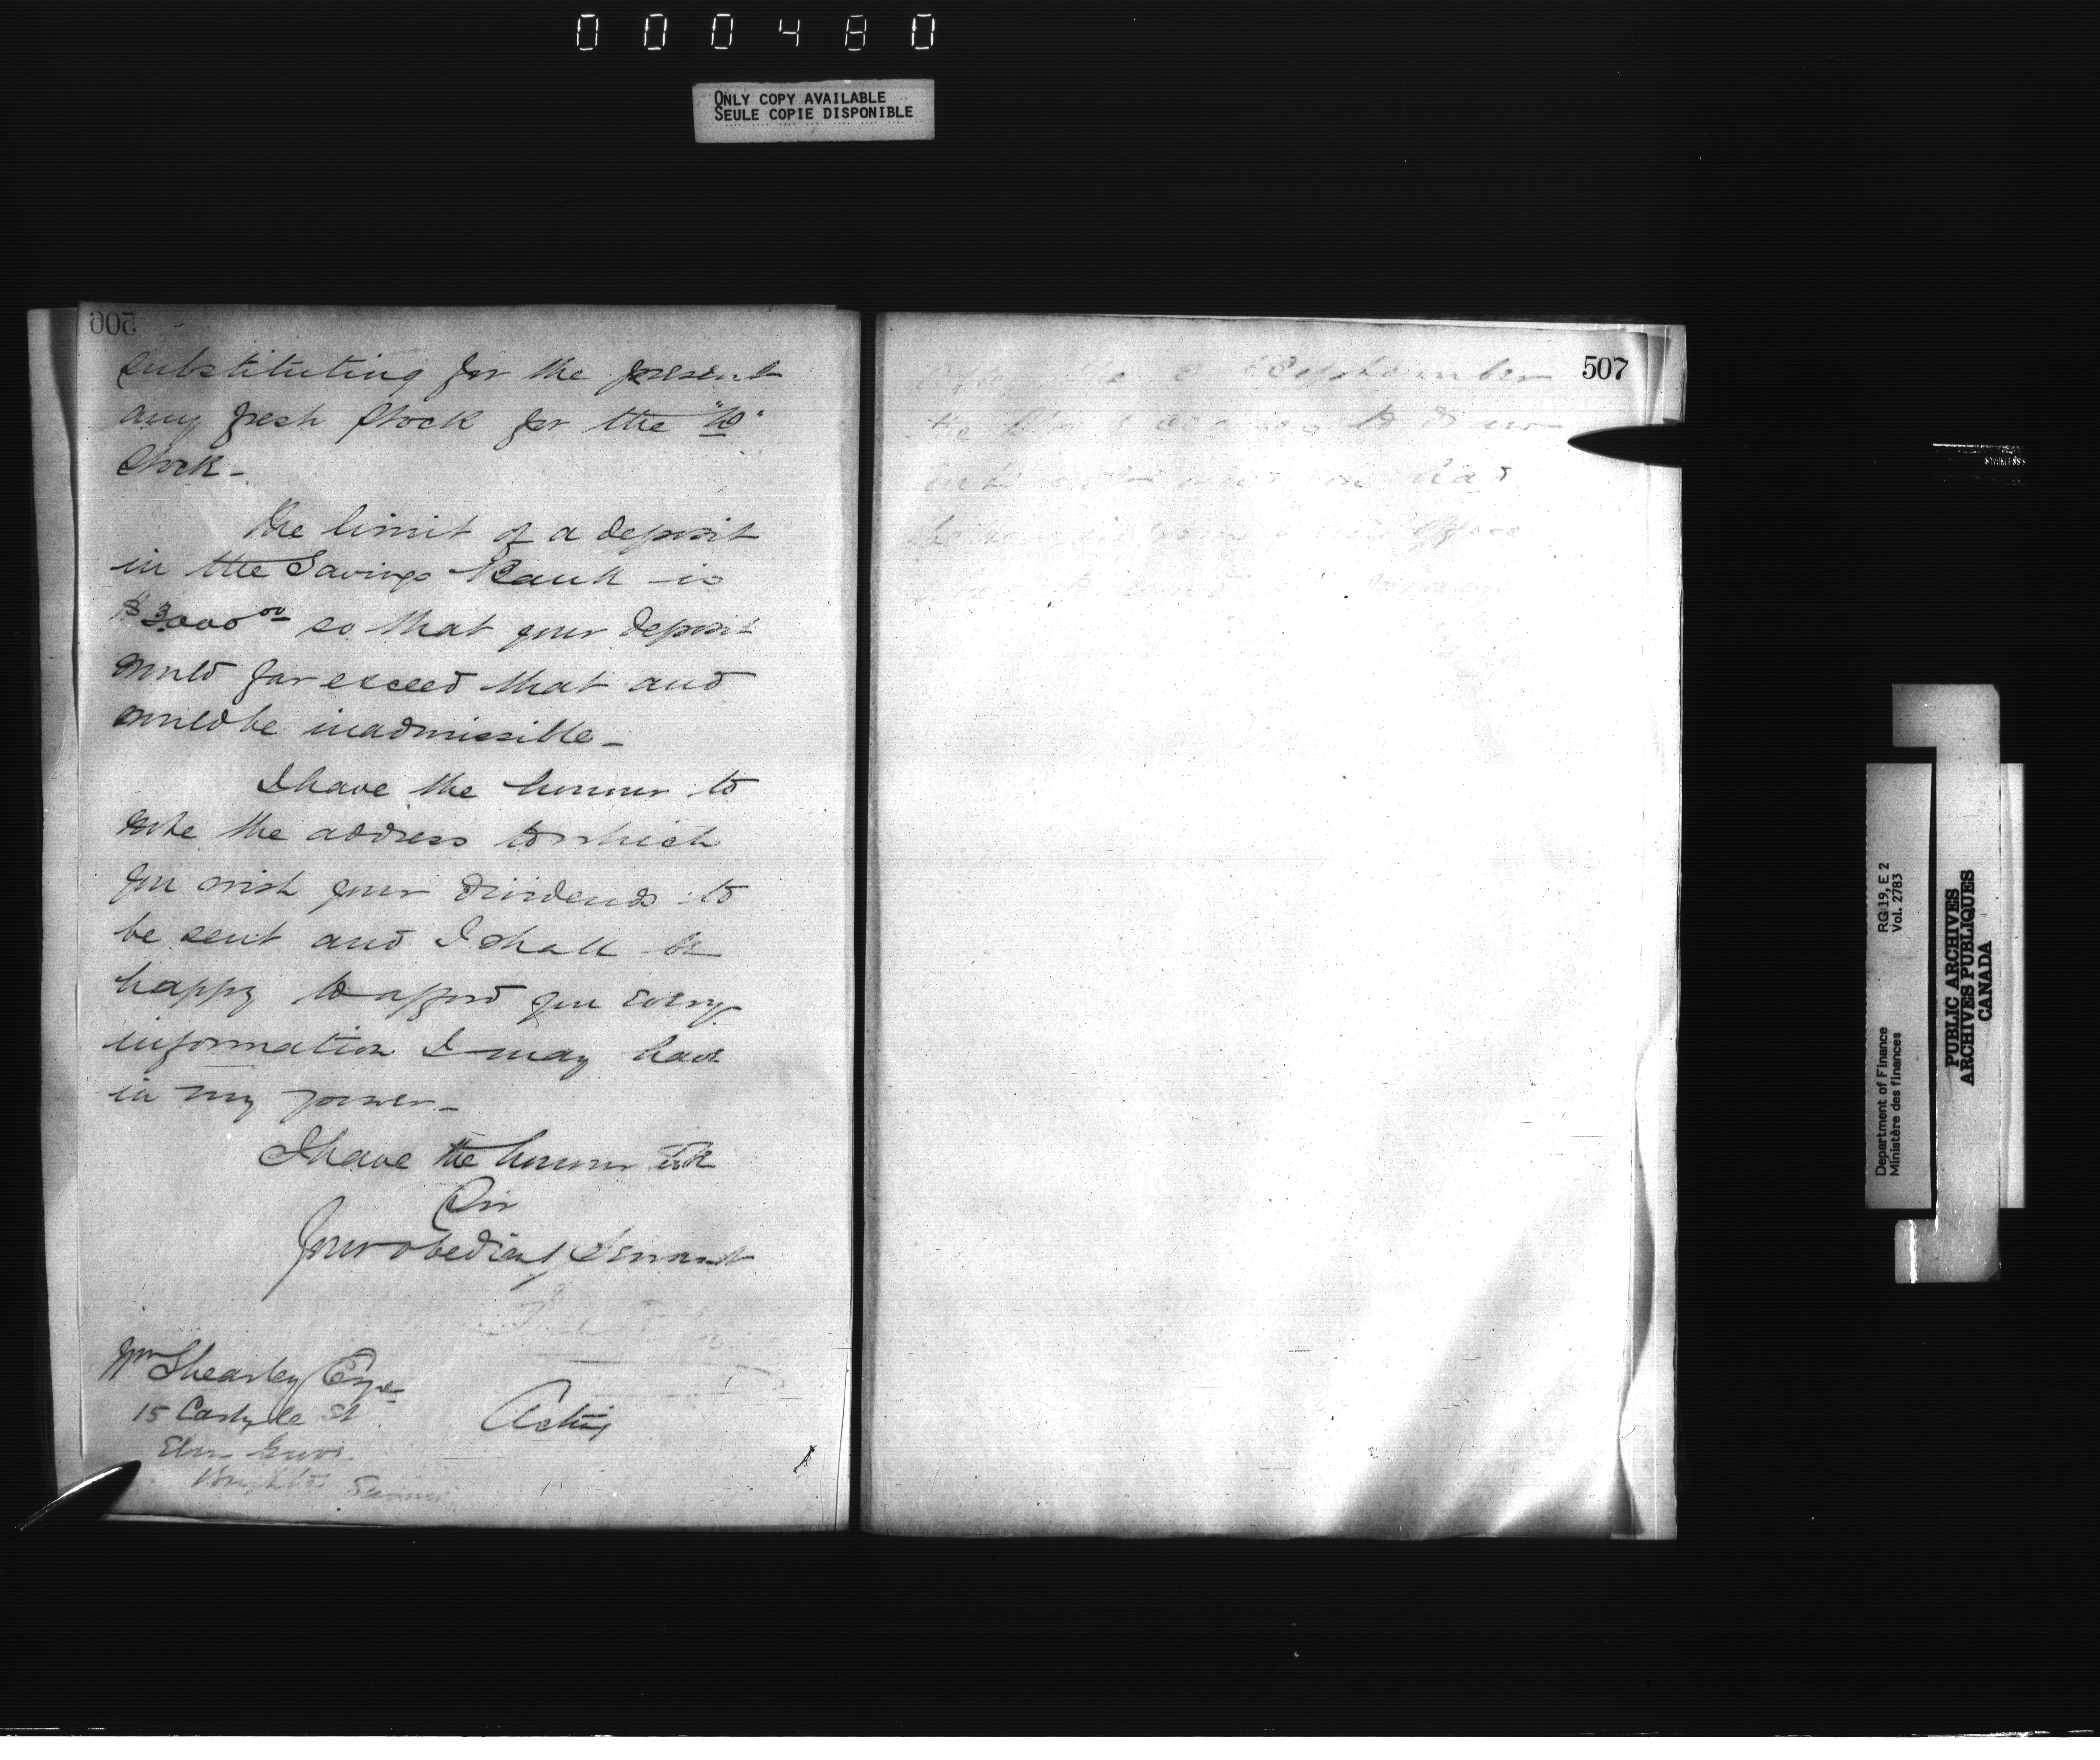 000480
ONLY COPY AVAILABLE
SEULE COPIE DISPONIBLE
506
substituting for the present
any fresh stock for the "D"
Stock -
The limit of a deposit
in the Savings Bank is
$3000 00 so that your deposit
would far exceed that and
would be inadmissible -
I have the honour to
note the address to which
you wish your dividends to
be sent and I shall be
happy to afford you every
information I may have
in my power -
I have the honour to be
Sir
Your obedient Servant
Wm Shearley Esqre
15 Carlyle St
Elm Grove
Brighton Sussex
Acting
507
September
the to draw
Office
RG 19, E 2
Vol. 2783
Department of Finance
Ministère des finances
PUBLIC ARCHIVES
ARCHIVES PUBLIQUES
CANADA